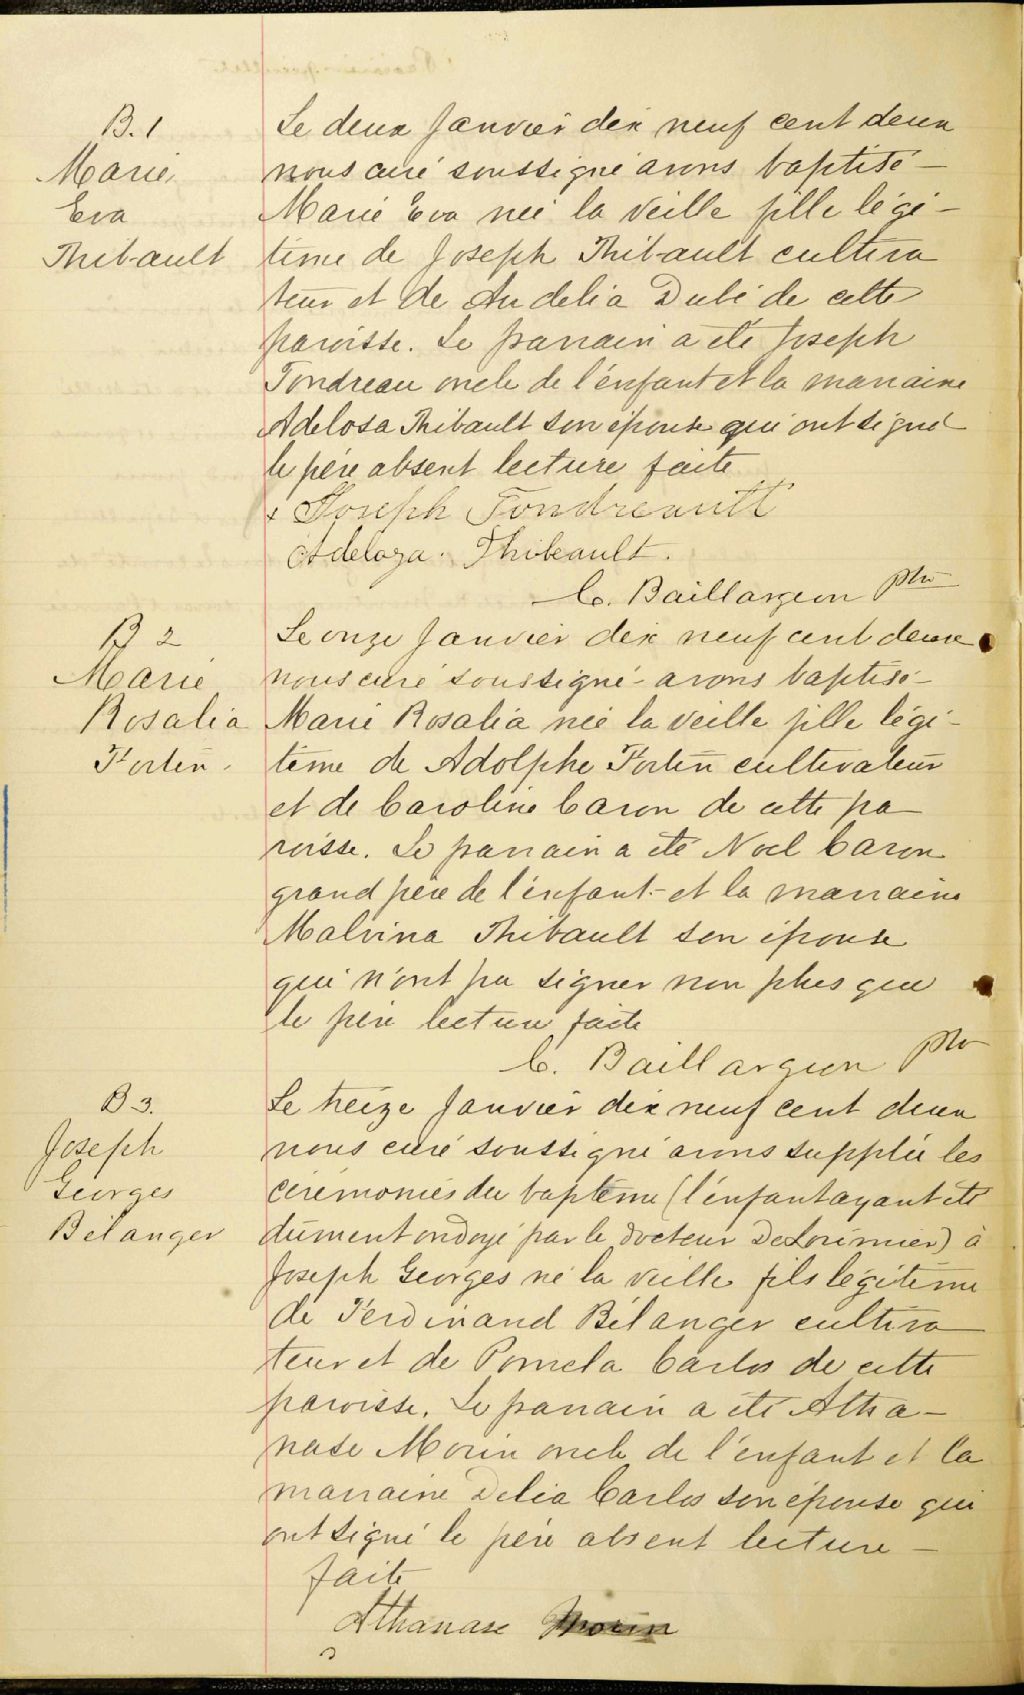 B.1
Marie
Eva
Thibault
Le deux Janvier dix neuf cent deux
nous curé soussigné avons baptisé -
Marie Eva née la veille fille légi-
time de Joseph Thibault cultiva
teur et de Audelia Dubé de cette
paroisse. Le parrain a été Joseph
Tondreau oncle de l'enfant et la marraine
Adelosa Thibault son épouse qui ont signé
le père absent lecture faite
Joseph Tondreault
Adeloza. Thibeault.
C. Baillargeon ptre
B 2
Marie
Rosalia
Fortin
Le onze Janvier dix neuf cent deux
nous curé soussigné avons baptisé -
Marie Rosalia née la veille fille légi-
time de Adolphe Fortin cultivateur
et de Caroline Caron de cette pa
roisse. Le parrain a été Noel Caron
grand père de l'enfant - et la marraine
Malvina Thibault son épouse
qui n'ont pu signer non plus que
le père lecture faite
C. Baillargeon ptre
B 3.
Joseph
Georges
Bélanger
Le treize Janvier dix neuf cent deux
nous curé soussigné avons supplée les
cérémonies du baptême (l'enfant ayant été
dûment ondoyé par le docteur DeLorimier) à
Joseph Georges né la veille fils légitime
de Ferdinand Bélanger cultiva
teur et de Pomela Carlos de cette
paroisse. Le parrain a été Atha-
nase Morin oncle de l'enfant et la
marraine Delia Carlos son épouse qui
ont signé le père absent lecture -
faite
Athanase Morin